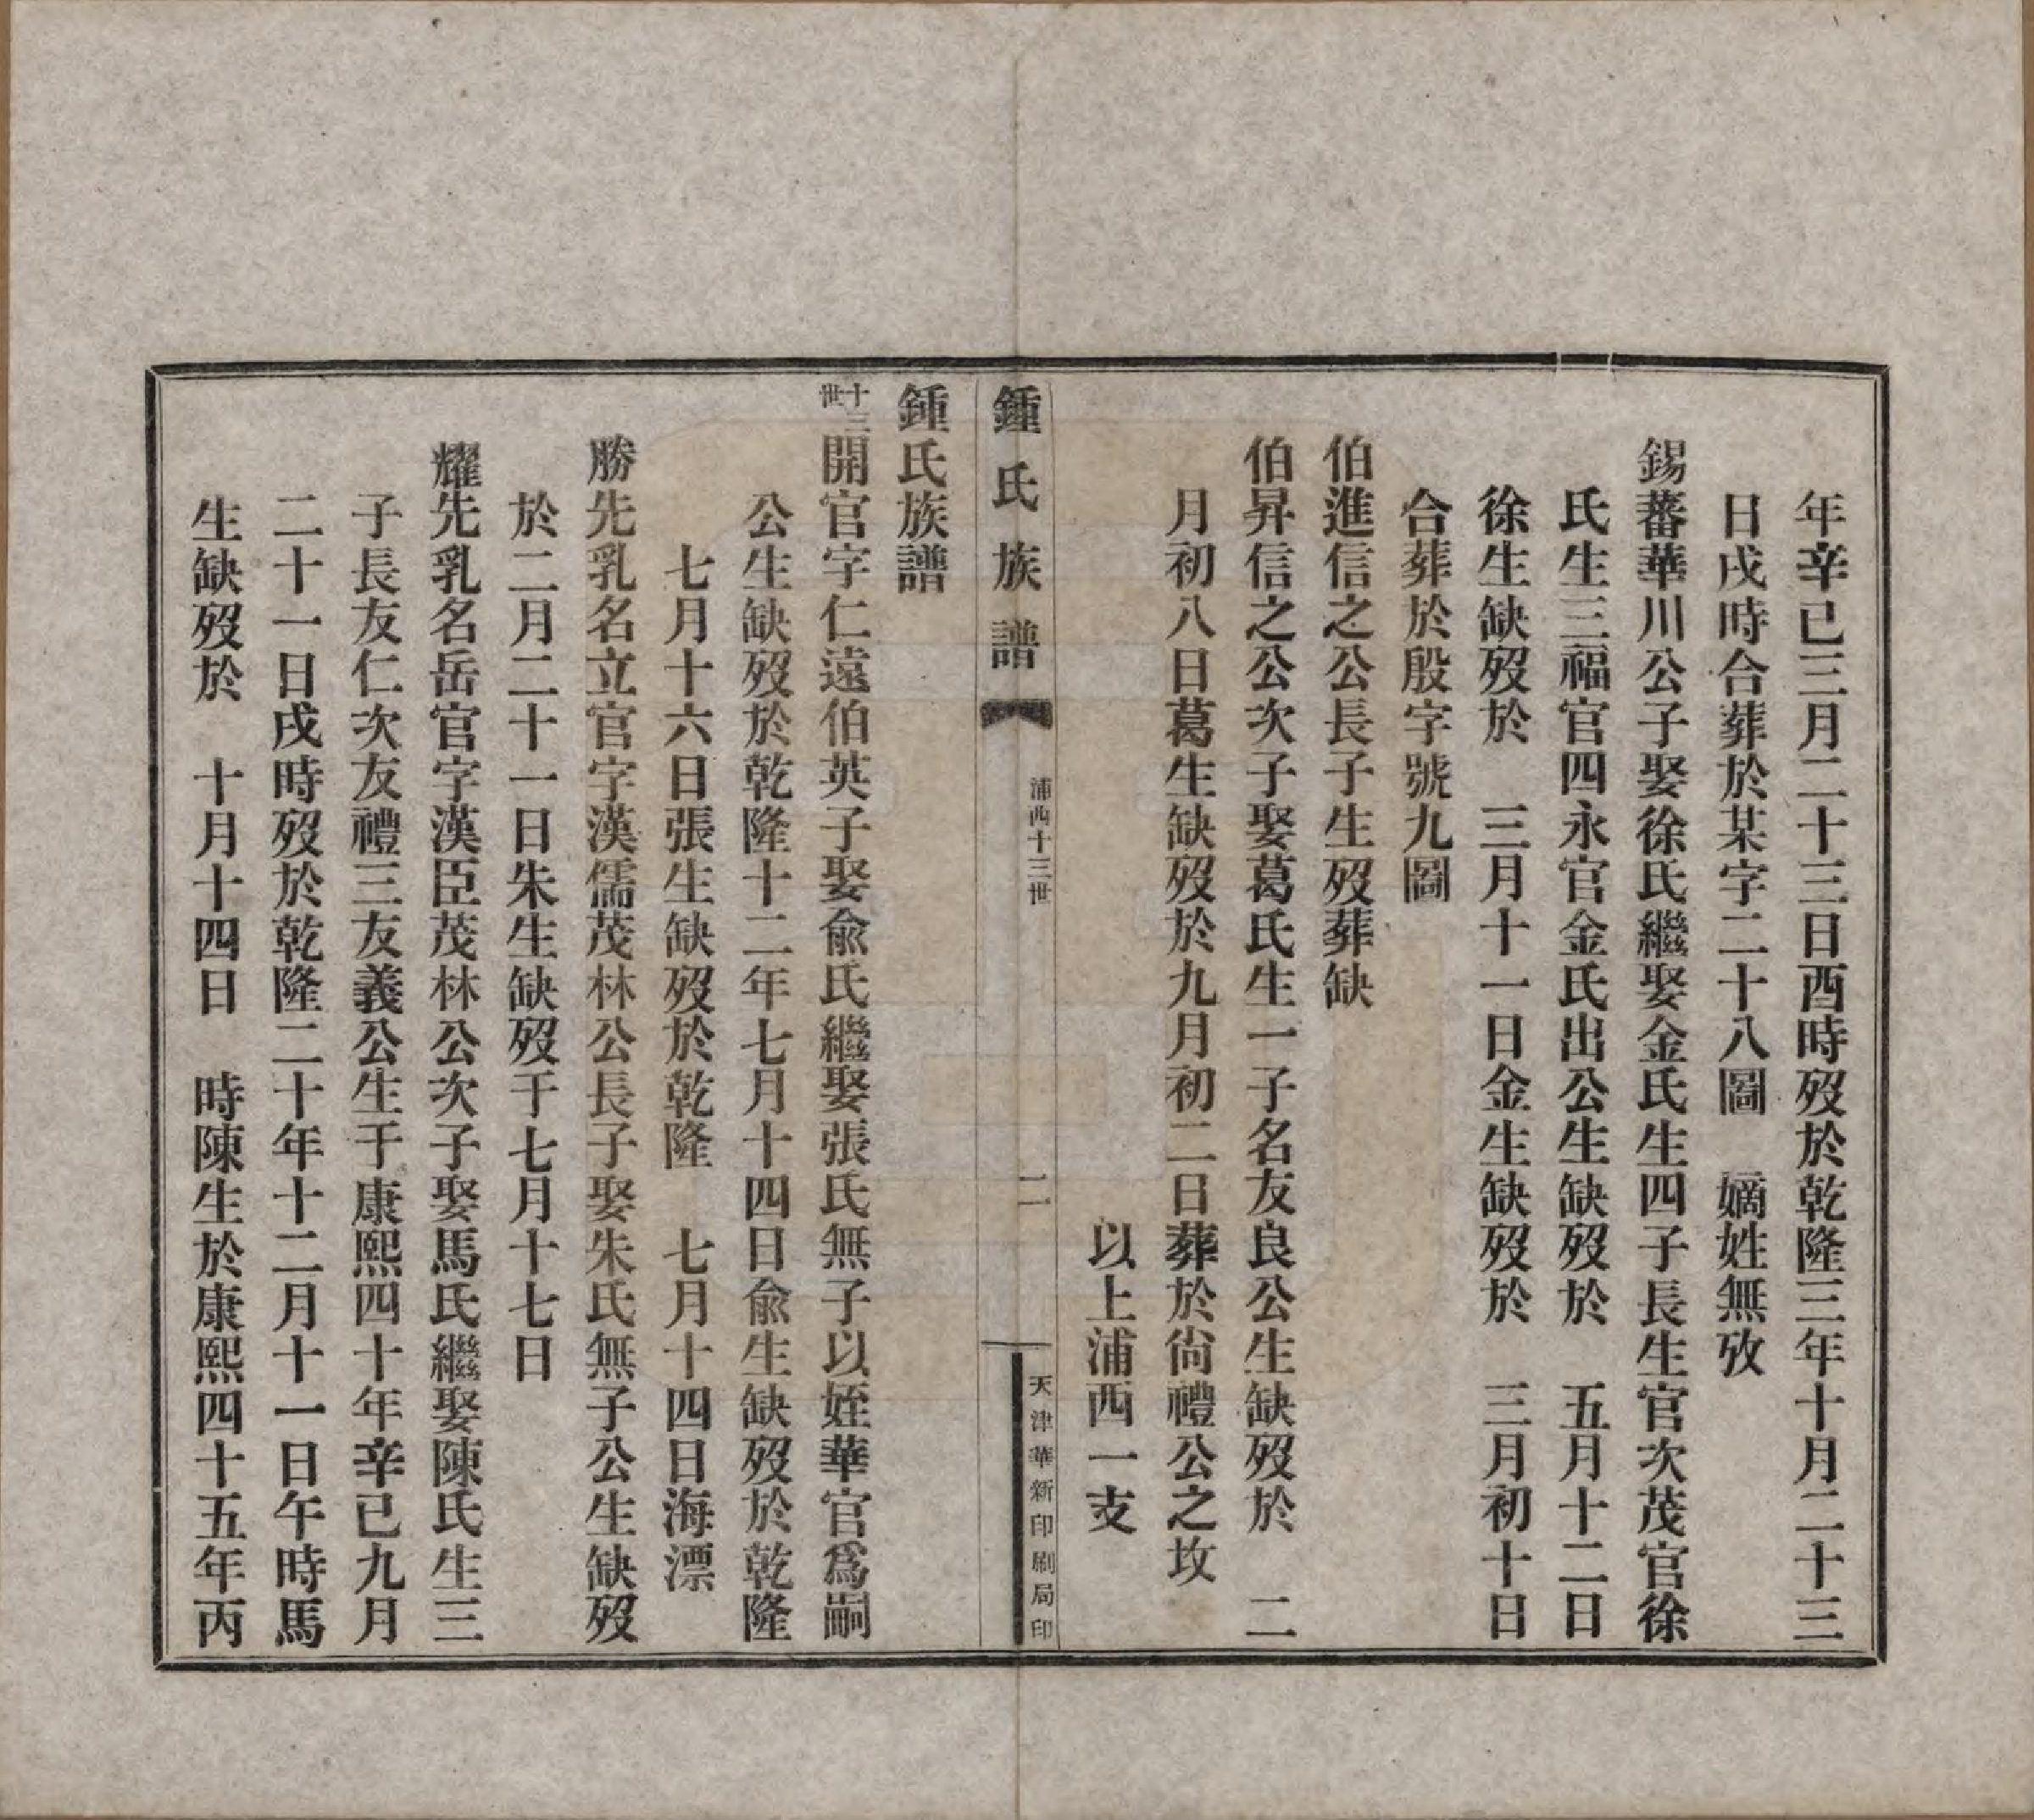 年辛巳三月二十三日酉時歿於乾隆三年十月二十三
日戌時合葬於某字二十八圖　嫡姓無攷
錫蕃華川公子娶徐氏繼娶金氏生四子長生官次茂官徐
氏生三福官四永官金氏出公生缺歿於　五月十二日
徐生缺歿於　三月十一日金生缺歿於　三月初十日
合葬於殷字號九圖
伯進信之公長子生歿葬缺
伯昇信之公次子娶葛氏生一子名友良公生缺歿於　二
月初八日葛生缺歿於九月初二日葬於尚禮公之坟
以上浦西一支
鍾氏族譜
浦西十三世
二
天津華新印刷局印
鍾氏族譜
十三世
開官字仁遠伯英子娶俞氏繼娶張氏無子以姪華官爲嗣
公生缺歿於乾隆十二年七月十四日俞生缺歿於乾隆
七月十六日張生缺歿於乾隆　七月十四日海漂
勝先乳名立官字漢儒茂林公長子娶朱氏無子公生缺歿
於二月二十一日朱生缺歿于七月十七日
耀先乳名岳官字漢臣茂林公次子娶馬氏繼娶陳氏生三
子長友仁次友禮三友義公生于康熙四十年辛巳九月
二十一日戌時歿於乾隆二十年十二月十一日午時馬
生缺歿於　十月十四日　時陳生於康熙四十五年丙